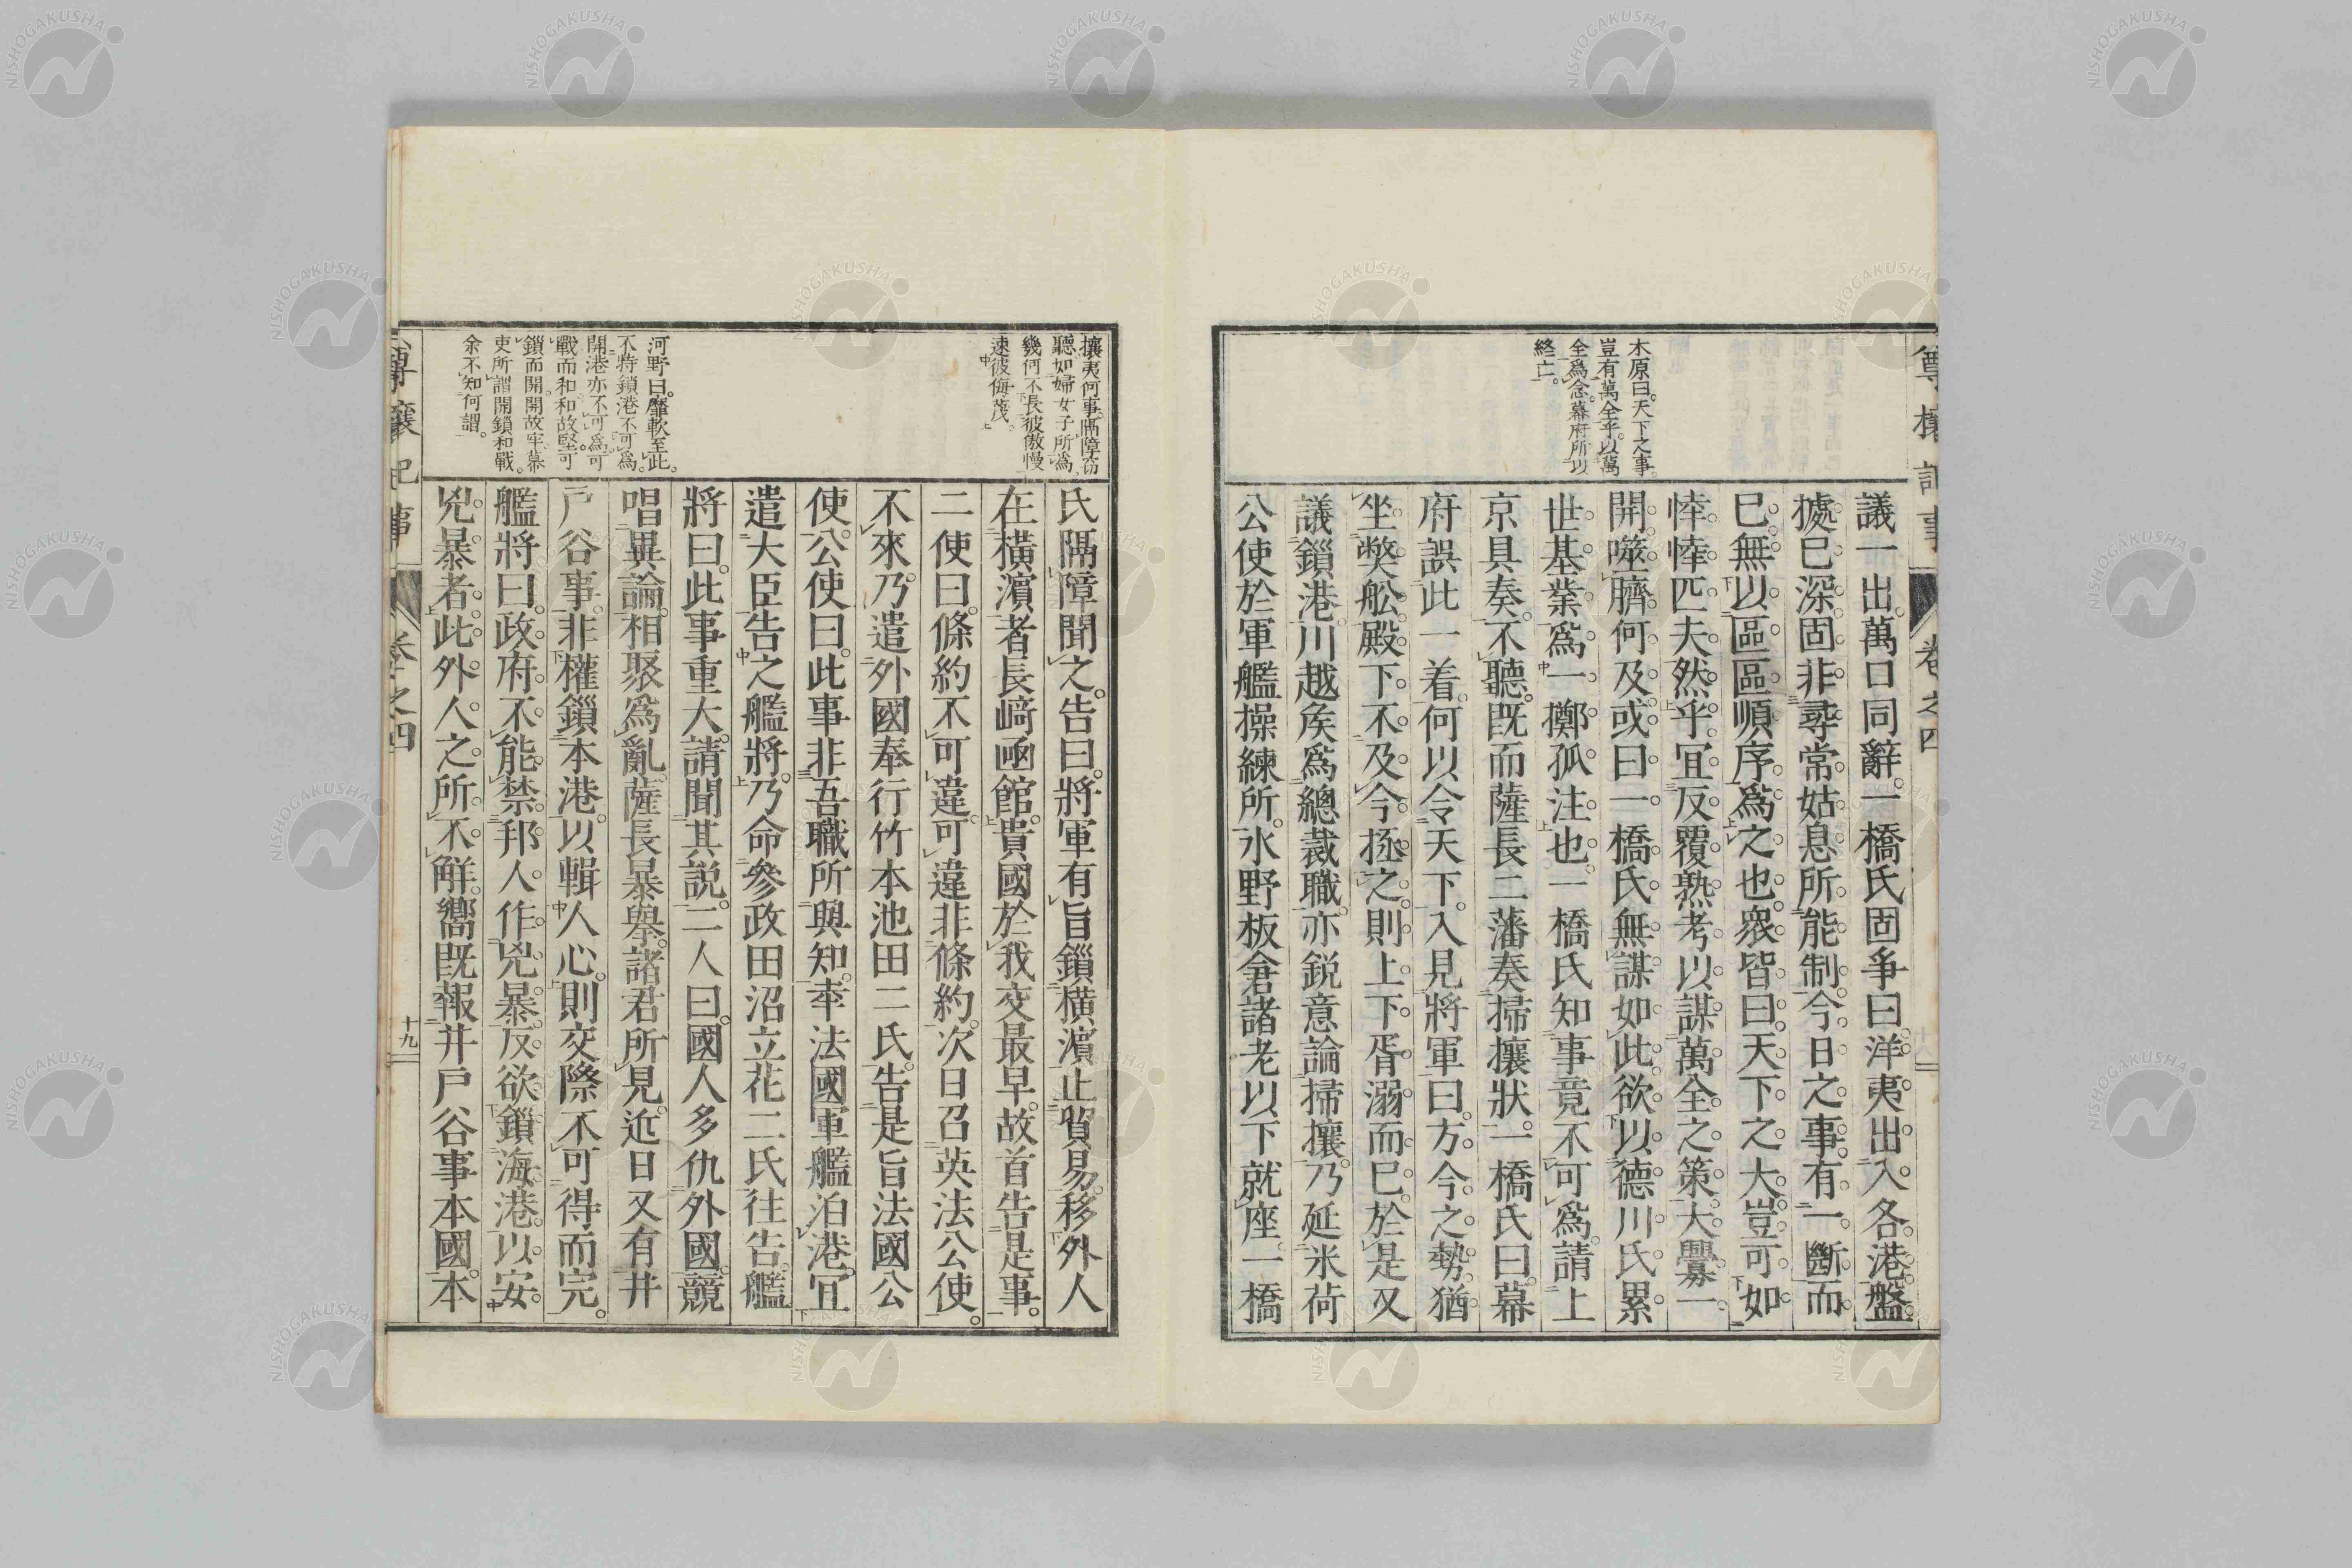 尊攘記事
卷之四
木原曰。天下之事。
豈有萬全乎。以萬
全爲念。幕府所以
終亡。
議一出。萬口同辭。一橋氏固爭曰。洋夷出入各港。盤
據已深。固非尋常姑息所能制。今日之事。有一斷而
已。無以區區順序爲之也。衆皆曰。天下之大。豈可如
悻悻匹夫然乎。宜反覆熟考。以謀萬全之策。大釁一
開。噬臍何及。或曰。一橋氏無謀如此。欲以德川氏累
世基業爲一擲孤注也。一橋氏知事竟不可爲。請上
京具奏。不聽。既而薩長二藩奏掃攘狀。一橋氏曰。幕
府誤此一着。何以令天下。入見將軍曰。方今之勢。猶
坐獘舩。殿下不及今拯之。則上下胥溺而已。於是又
議鎻港。川越矦爲總裁職。亦鋭意論掃攘。乃延米荷
公使於軍艦操練所。水野板倉諸老以下就座。一橋
攘夷何事。隔障窃
聽如婦女子所爲。
幾何不長彼傲慢
速彼侮蔑。
河野曰。肇軟至此。
不特鎖港不可爲。
開港亦不可爲。可
戰而和。和故堅。可
鎖而開。開故牢。幕
吏所謂開鎖和戰。
余不知何謂。
氏隔障聞之。告曰。將軍有旨鎻橫濱。止貿易。移外人
在橫濱者長﨑凾館。貴國於我交最早。故首告是事。
二使曰。條約不可違。可違非條約。次日召英法公使。
不來。乃遣外國奉行竹本池田二氏。告是旨法國公
使。公使曰。此事非吾職所與知。幸法國軍艦泊港。宜
遣大臣告之艦將。乃命參政田沼立花二氏往告。艦
將曰。此事重大。請聞其説。二人曰。國人多仇外國。競
唱異論。相聚爲亂。薩長暴擧。諸君所見。近日又有井
戶谷事。非權鎻本港。以輯人心。則交際不可得而完。
艦將曰。政府不能禁邦人作兇暴。反欲鎻海港。以安
兇暴者。此外人之所不解。嚮既報井戶谷事本國。本
尊攘記事
卷之四
十九